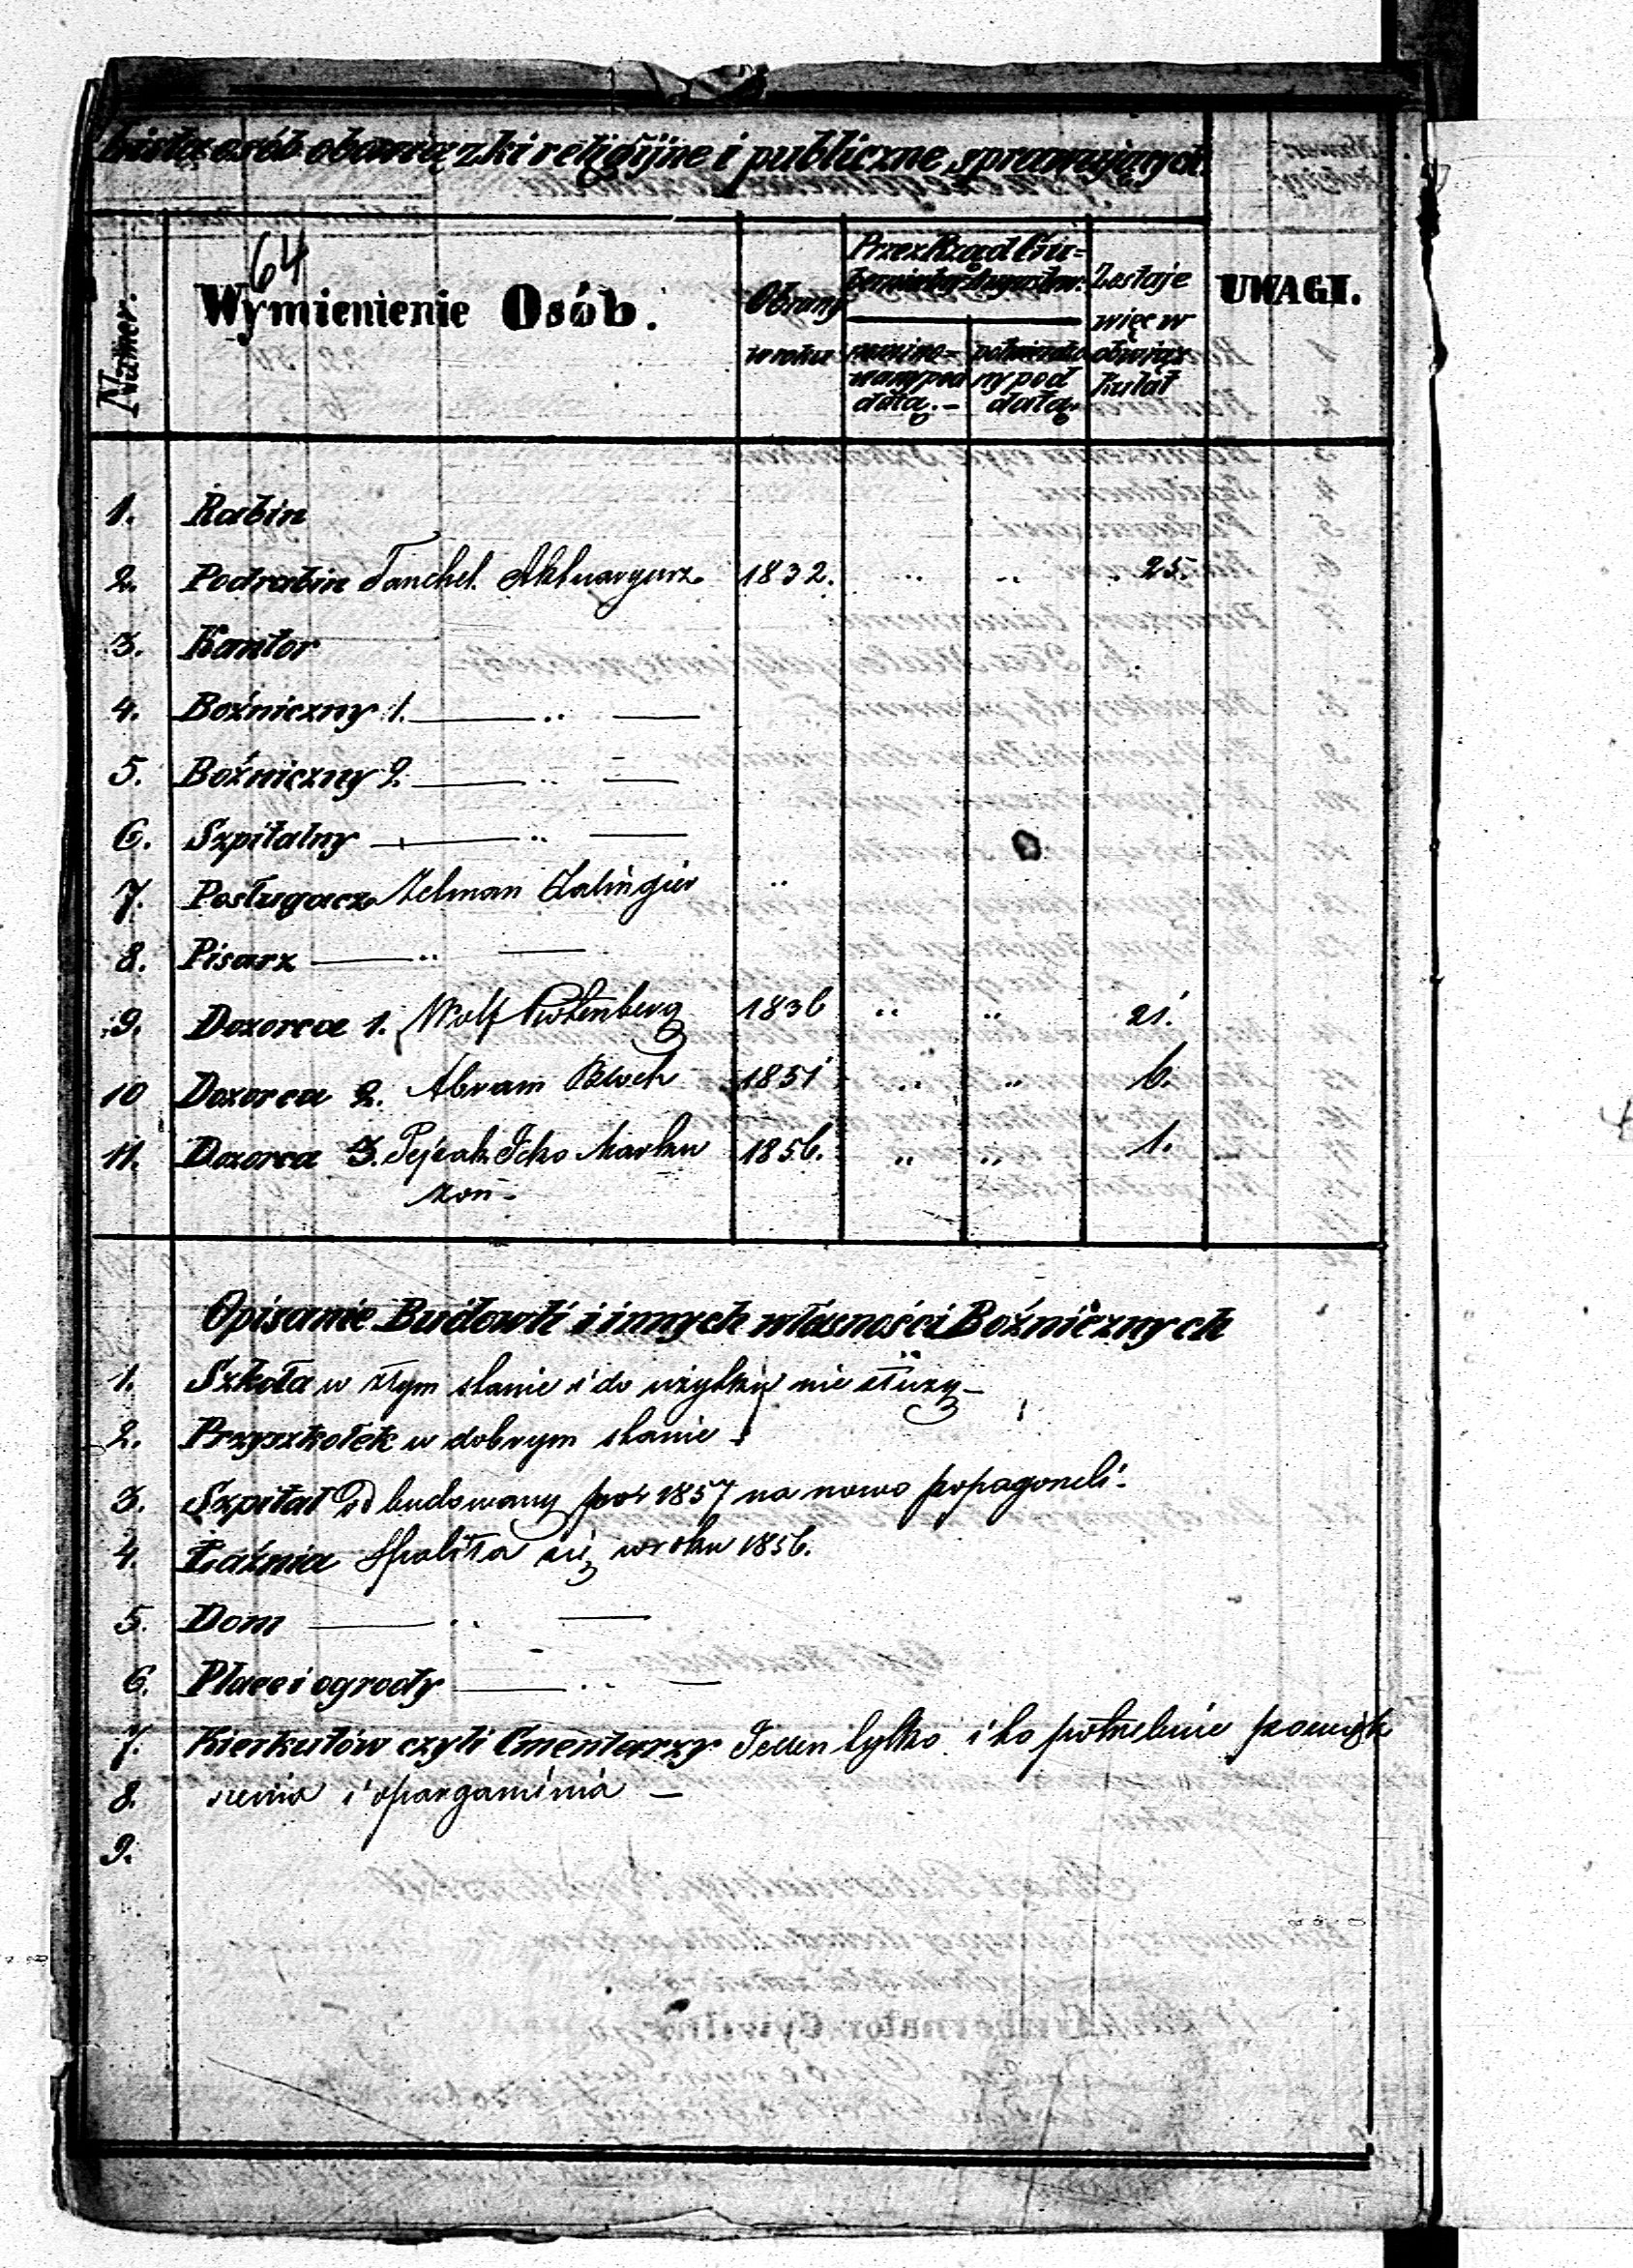 Lista osób obowiązki religijne i publiczne sprawujących.
64
Numer.
Wymienienie Osób.
Obrany w roku
Przez Rząd Gubernialny Augustow:
nominowany pod datą.-
potwierdzony pod datą.
Zostaje więc w obowiązku lat
UWAGI.
1. Rabin
2. Podrabin Tanchel 1832. .. .. 25.
3. Kantor
4. Bożniczny 1. — .. —
5. Bożniczny 2. — .. —
6. Szpitalny — .. —
7. Posługacz Zelman ..
8. Pisarz — .. —
9. Dozorca 1. Wolf 1836 .. .. 21.
10 Dozorca 2. Abram Bloch 1851 .. .. 6.
11. Dozorca 3. Icko Marku 1856. .. .. 1.
zon -
Opisanie Budowli i innych własności Bożnicznych
1. Szkoła w złym stanie i do użytku nie służy -
2. Przyszkołek w dobrym stanie -
3. Szpital Odbudowany 1857 na nowo po pogoreli.
4. Łaźnia Spaliła się w roku 1856.
5. Dom — .. —
6. Place i ogrody — .. —
7. Kierkutów czyli Cmentarzy Jeden tylko i to potrzebuie powięk
8. szenia i oparganienia —
9.